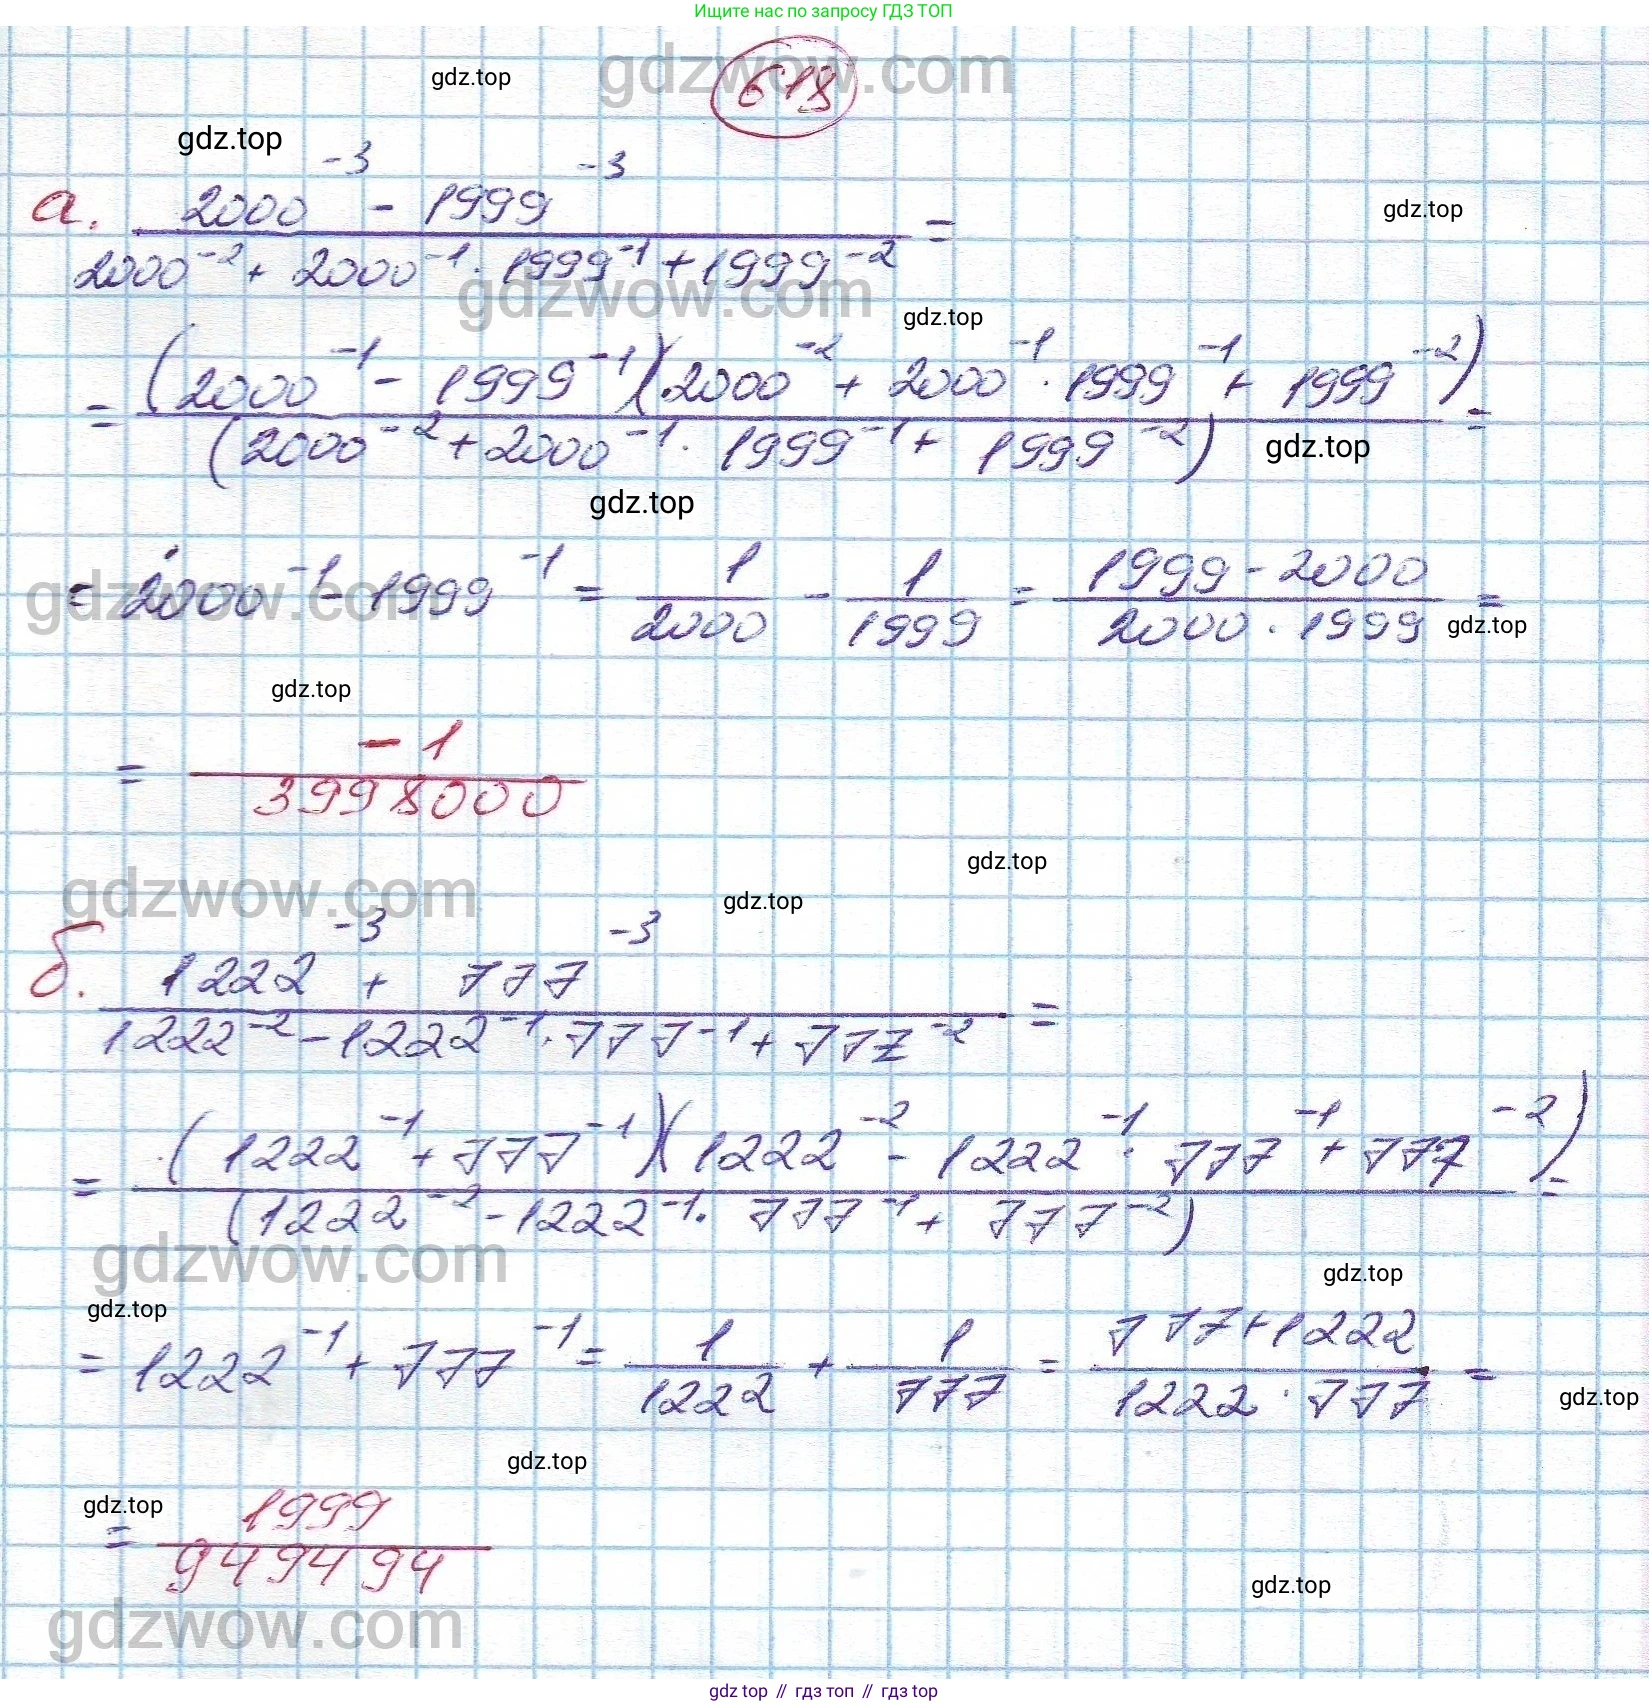 Ищите нас по запросу ГДЗ ТОП
618
gdz.top gdzwow.com
gdz.top
а. (2000^-3 - 1999^-3) / (2000^-2 + 2000^-1 · 1999^-1 + 1999^-2) =
gdz.top
gdzwow.com
gdz.top
= (2000^-1 - 1999^-1)(2000^-2 + 2000^-1 · 1999^-1 + 1999^-2) / (2000^-2 + 2000^-1 · 1999^-1 + 1999^-2) =
gdz.top
gdz.top
= 2000^-1 - 1999^-1 = 1/2000 - 1/1999 = (1999 - 2000)/(2000 · 1999) =
gdzwow.com
gdz.top
gdz.top
= -1/3998000
gdz.top
gdzwow.com
gdz.top
б. (1222^-3 + 777^-3) / (1222^-2 - 1222^-1 · 777^-1 + 777^-2) =
= (1222^-1 + 777^-1)(1222^-2 - 1222^-1 · 777^-1 + 777^-2) / (1222^-2 - 1222^-1 · 777^-1 + 777^-2) =
gdzwow.com
gdz.top
gdz.top
= 1222^-1 + 777^-1 = 1/1222 + 1/777 = (777 + 1222)/(1222 · 777) =
gdz.top
gdz.top
gdz.top
= 1999/949494
gdz.top
gdzwow.com
gdz top // гдз топ // гдз top